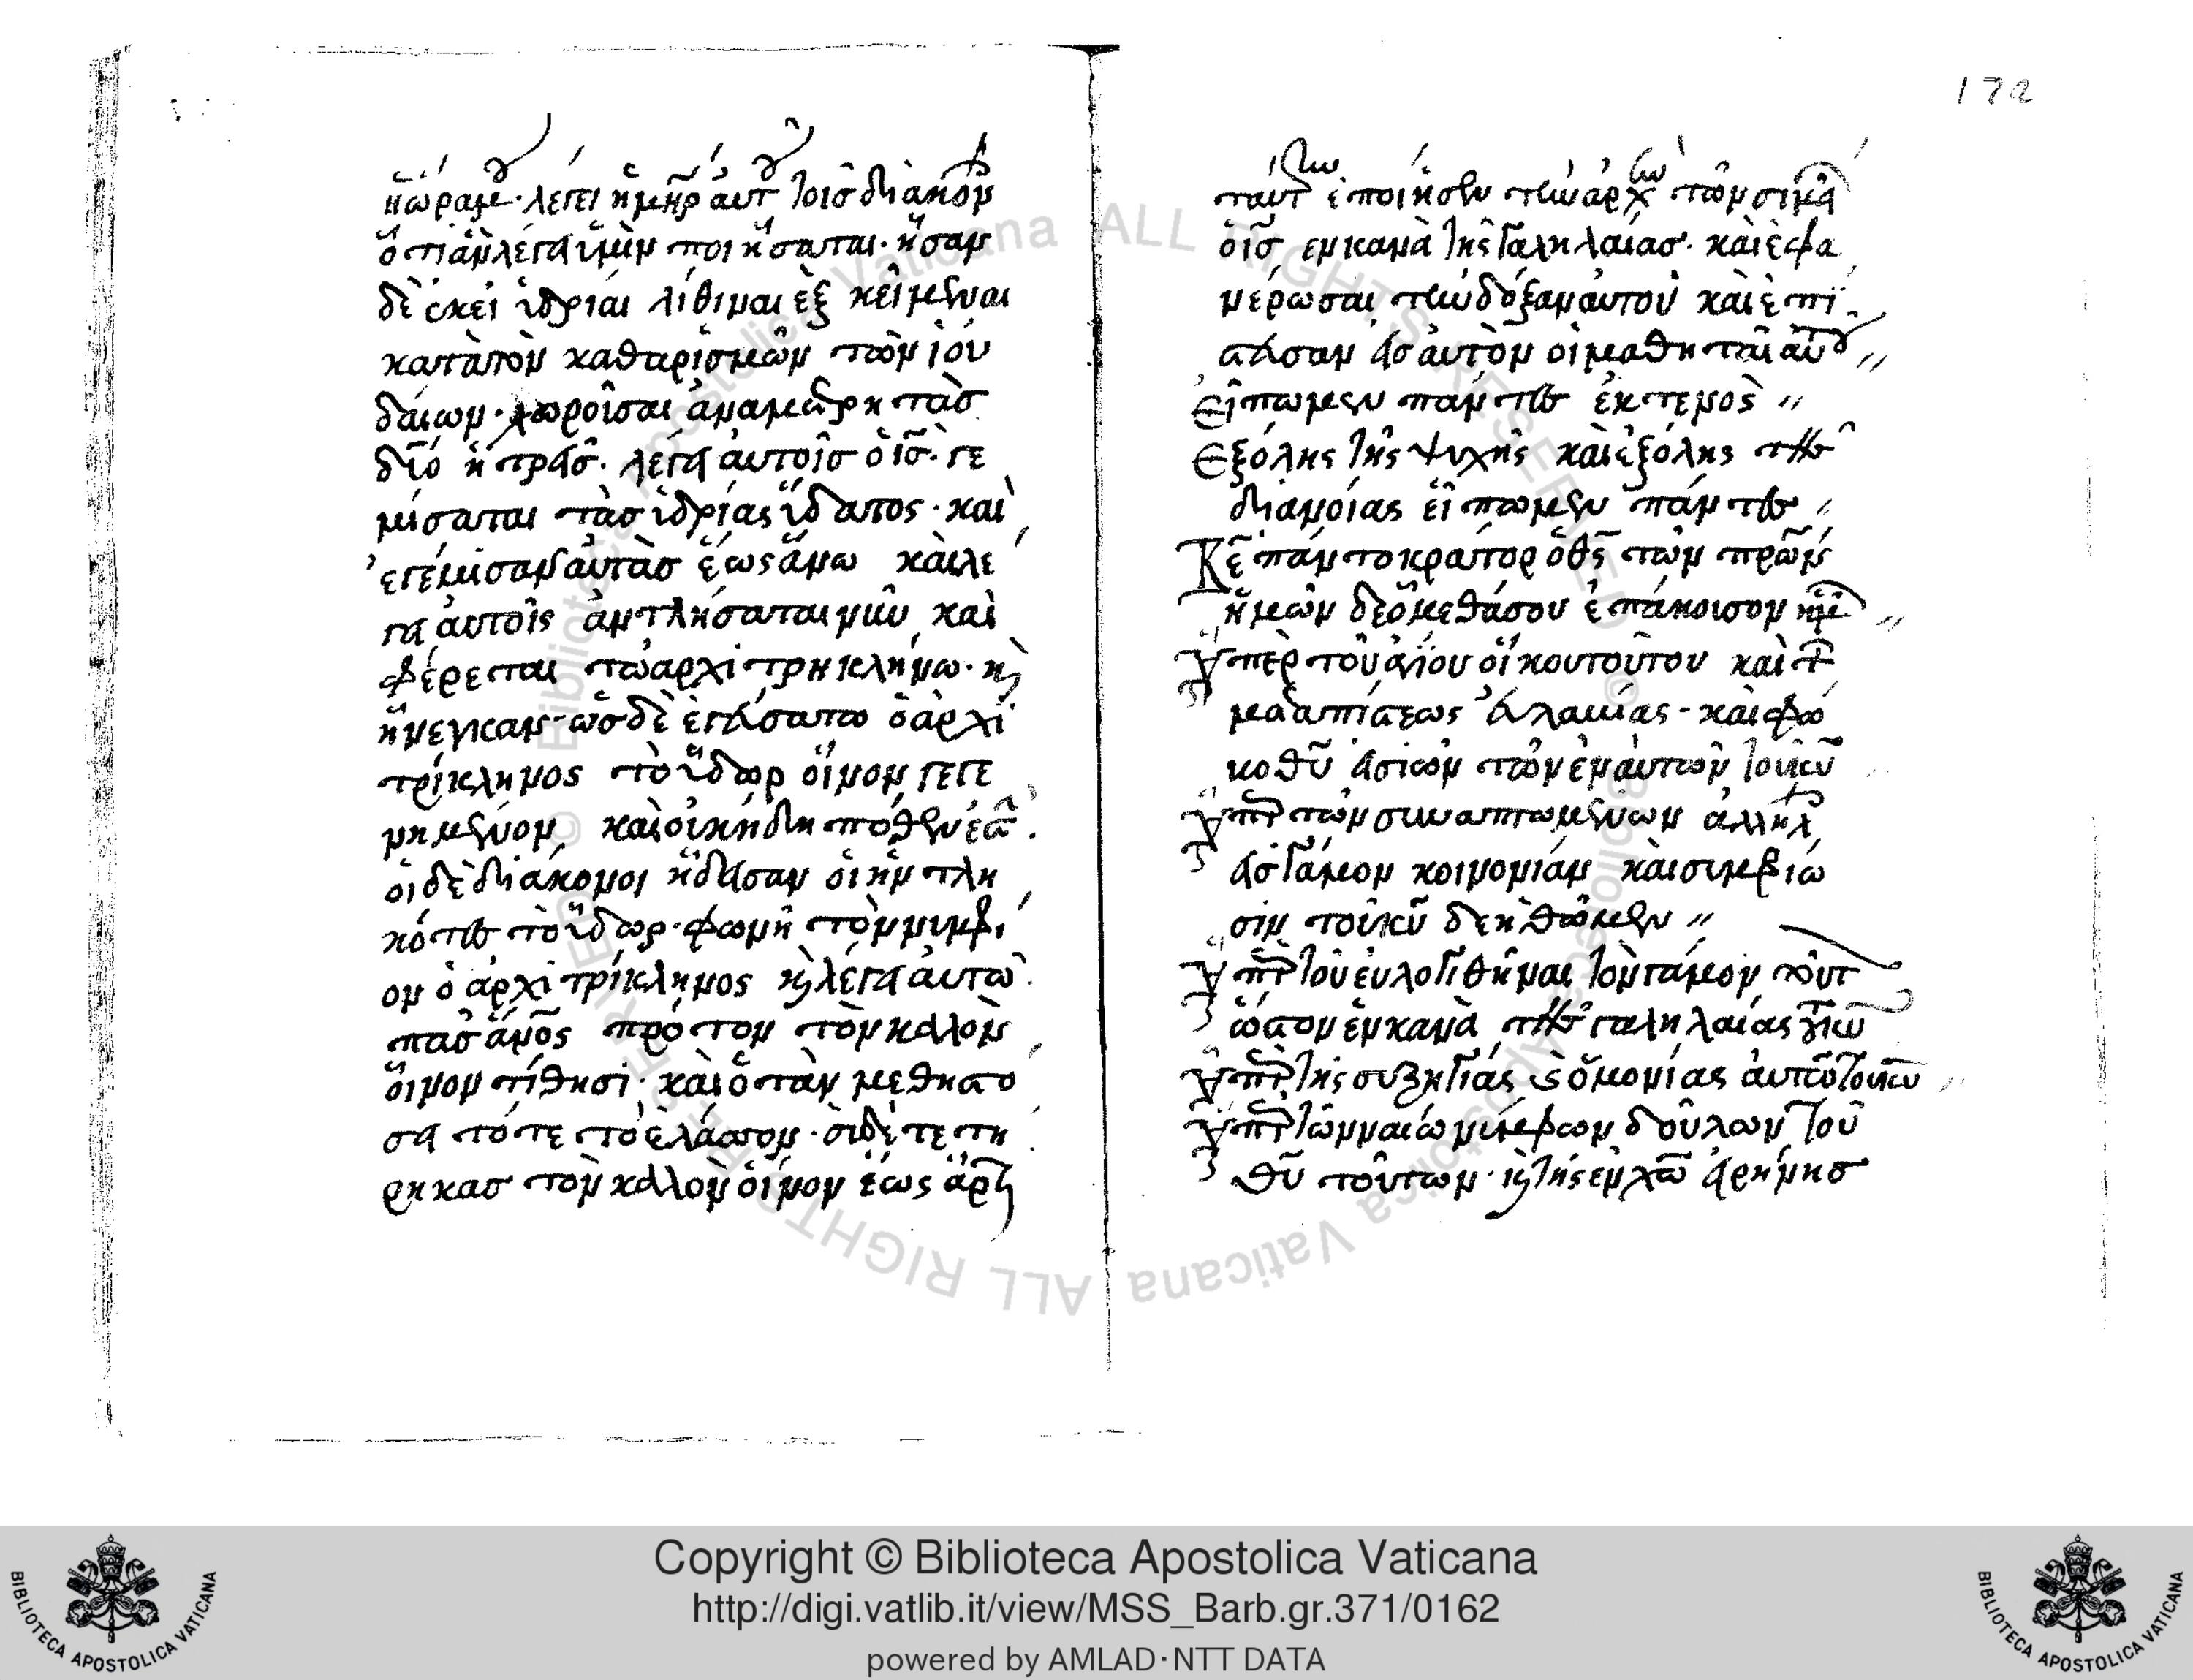 172
ἡ ὥρα μου· λέγει ἡ μηρ αυτου τοισ διακον
ὅτι ἂν λέγει ὑμῖν ποιήσαται· ἦσαν
δὲ ἐκεῖ ὑδρίαι λίθιναι ἓξ κείμεναι
κατὰ τὸν καθαρισμὼν τῶν ἰου
δαίων· χωροῖσαι ἀναμετρητὰσ
δύο ἢ τρεῖσ. λέγει αὐτοῖσ ὁ ἰσ· γε
μίσαται τὰσ ὑδρίας ὕδατος· καὶ
ἐγέμισαν αὐτὰσ ἕως ἄνω καὶ λε
γει αὐτοῖς ἀντλήσαται νῦν καὶ
φέρεται τῶ ἀρχιτρηκλήνω· κ
ἤνεγκαν· ὡσ δὲ ἐγεύσατω ὁ ἀρχι
τρίκληνος τὸ ὕδωρ οἶνον γεγε
νημένον καὶ οἰκ ἤδη πόθεν ἐστ.
οἱ δὲ διάκονοι ἤδεισαν οἱ ἠντλη
κότες τὸ ὕδωρ· φωνῆ τὸν νυμφι
ον ὁ ἀρχιτρίκληνος κ λέγει ἀυτῶ·
πασ ἄνος πρότον τὸν καλὸν
οἶνον τίθησι· καὶ ὅταν μεθησ
σει τότε τὸ ἐλάσσον· σὶ δὲ τετη
ρηκασ τὸν καλὸν οἶνον ἕως ἄρτι
ταύτην ἐποίησεν τὴν ἀρχὴν τῶν σιμεί
ὁ ἰσ ἐν κανὰ τῆς Γαληλαίασ· καὶ ἐφα
νέρωσαι τὴν δόξαν αὐτοῦ καὶ ἐπί
στευσαν εἰσ αὐτὸν οἱ μαθηταὶ αὐτου //
Εἴπωμεν πάντες ἐκτενὸς //
Εξόλης τῆς ψυχῆς καὶ ἐξόλης τῆς
διανοίας εἴπωμεν πάντες //
Κε παντοκράτορ ὁ θς τῶν πρων
ἡμῶν δεόμεθά σου ἐπάκοισον //
Υπὲρ τοῦ ἁγίου οἴκου τούτου καὶ τ
μετα πίστεως εὐλαβείας· καὶ φό
υ θυ εἰσιών τῶν ἐν αὐτῶ τοῦ κυ
Υπερ τῶν συναπτωμένων ἀλλήλ
εἰσ Γάμον κοινονίαν καὶ συμβιώ
σιν τοῦ κυ δεηθῶμεν //
Υπερ τοῦ εὐλογιθῆναι τὸν γάμον τοῦτ
ὥσπον ἐν κανὰ τῆς γαληλαίας
Υπερ τῆς συζηγίας κ ὁμονίας αὐτῶν τοῦ κυ
Υπερ τῶν ναιωνύμφων δούλων τοῦ
θυ τούτων· κ τῆς ἐν χω εἰρήνησ
Copyright © Biblioteca Apostolica Vaticana
http://digi.vatlib.it/view/MSS_Barb.gr.371/0162
powered by AMLAD·NTT DATA
BIBLIOTECA APOSTOLICA VATICANA
BIBLIOTECA APOSTOLICA VATICANA